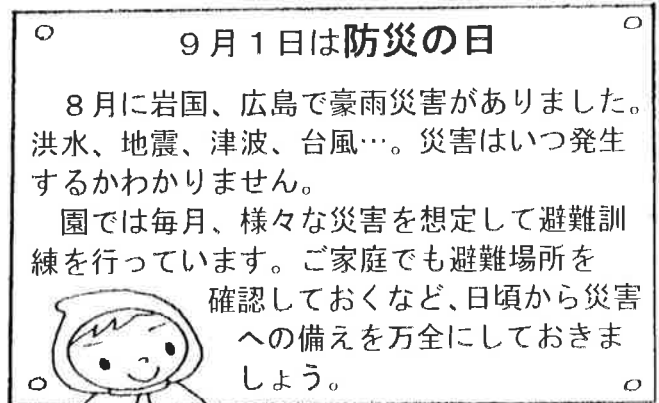 9月1日は防災の日
8月に岩国、広島で豪雨災害がありました。
洪水、地震、津波、台風…。災害はいつ発生
するかわかりません。
園では毎月、様々な災害を想定して避難訓
練を行っています。ご家庭でも避難場所を
確認しておくなど、日頃から災害
への備えを万全にしておきま
しょう。